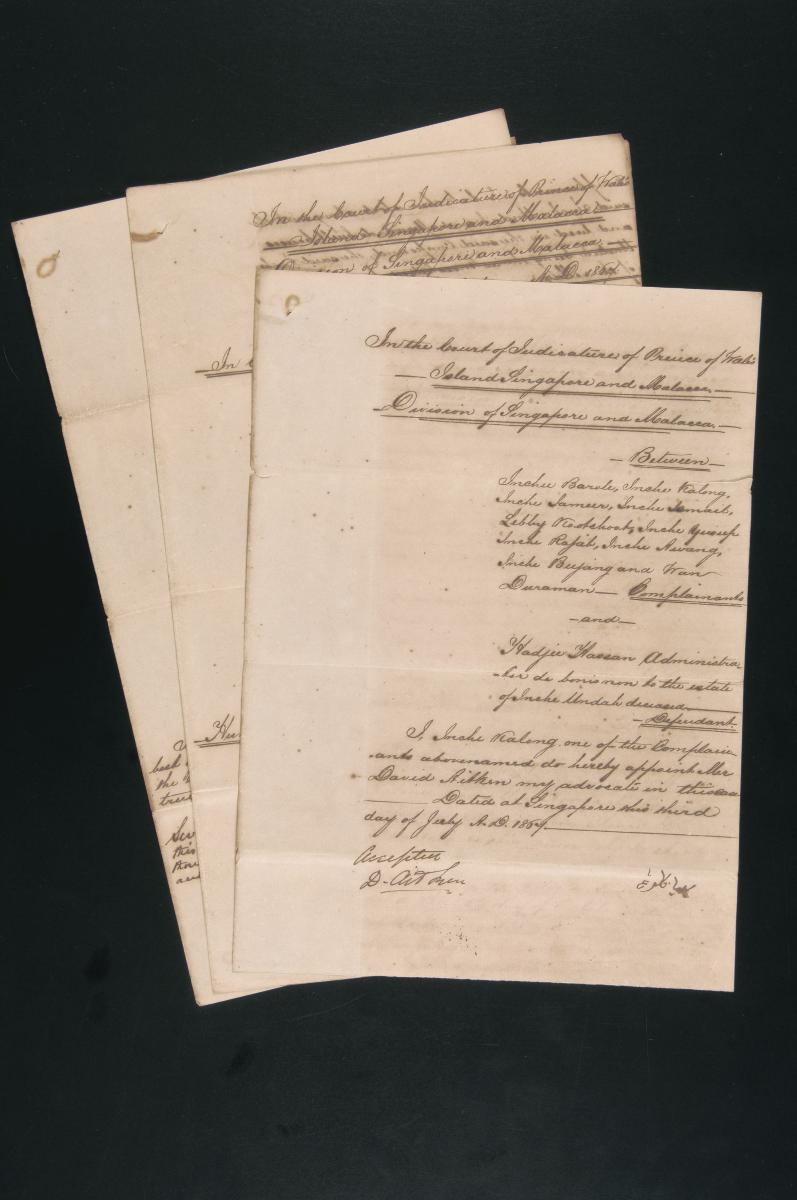 In the Court of Judicature of Prince of Wales
Island Singapore and Malacca
Division of Singapore and Malacca
A. D. 186
In
Hu
beef
the
tree
Ser
this
thou
and
In the Court of Judicature of Prince of Wales
Island Singapore and Malacca.
Division of Singapore and Malacca.
Between
Inchee Barole, Inche Kalong,
Inche Sameer, Inche Ismael,
Lebby Inche Yusuf
Inche Rajab, Inche Awang,
Inche Bujang and Wan
Duraman Complainants
and
Hadjee Hassan Administra
tor de bonis non to the estate
of Inche Undah deceased
Defendant.
I, Inche Kalong one of the Complain
ants abovenamed do hereby appoint Mr
David Aitken my advocate in this
Dated at Singapore this third
day of July A.D. 186
Accepted
D. Aitken